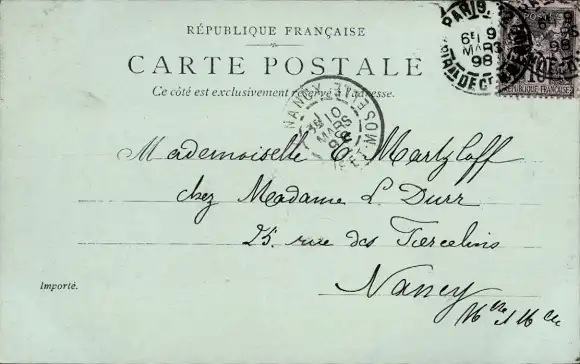 RÉPUBLIQUE FRANÇAISE
CARTE POSTALE
Ce côté est exclusivement réservé à l'adresse.
PARIS
6E 9
MARS
98
10
RÉPUBLIQUE FRANÇAISE
NANCY
MEURTHE-ET-MOSELLE
10
MARS
98
Mademoiselle E. Martzloff
chez Madame L. Durr
25. rue des Tiercelins
Nancy
Mthe & Mlle
Importé.